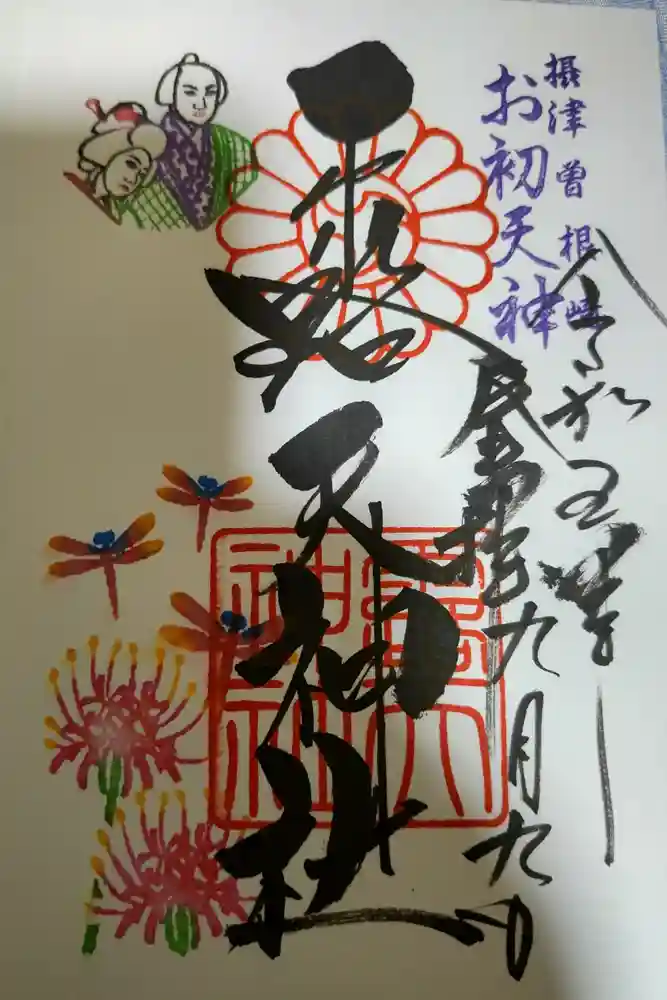 摂津曽根崎
お初天神
令和五年
九月九日
露天神社
露天
神社